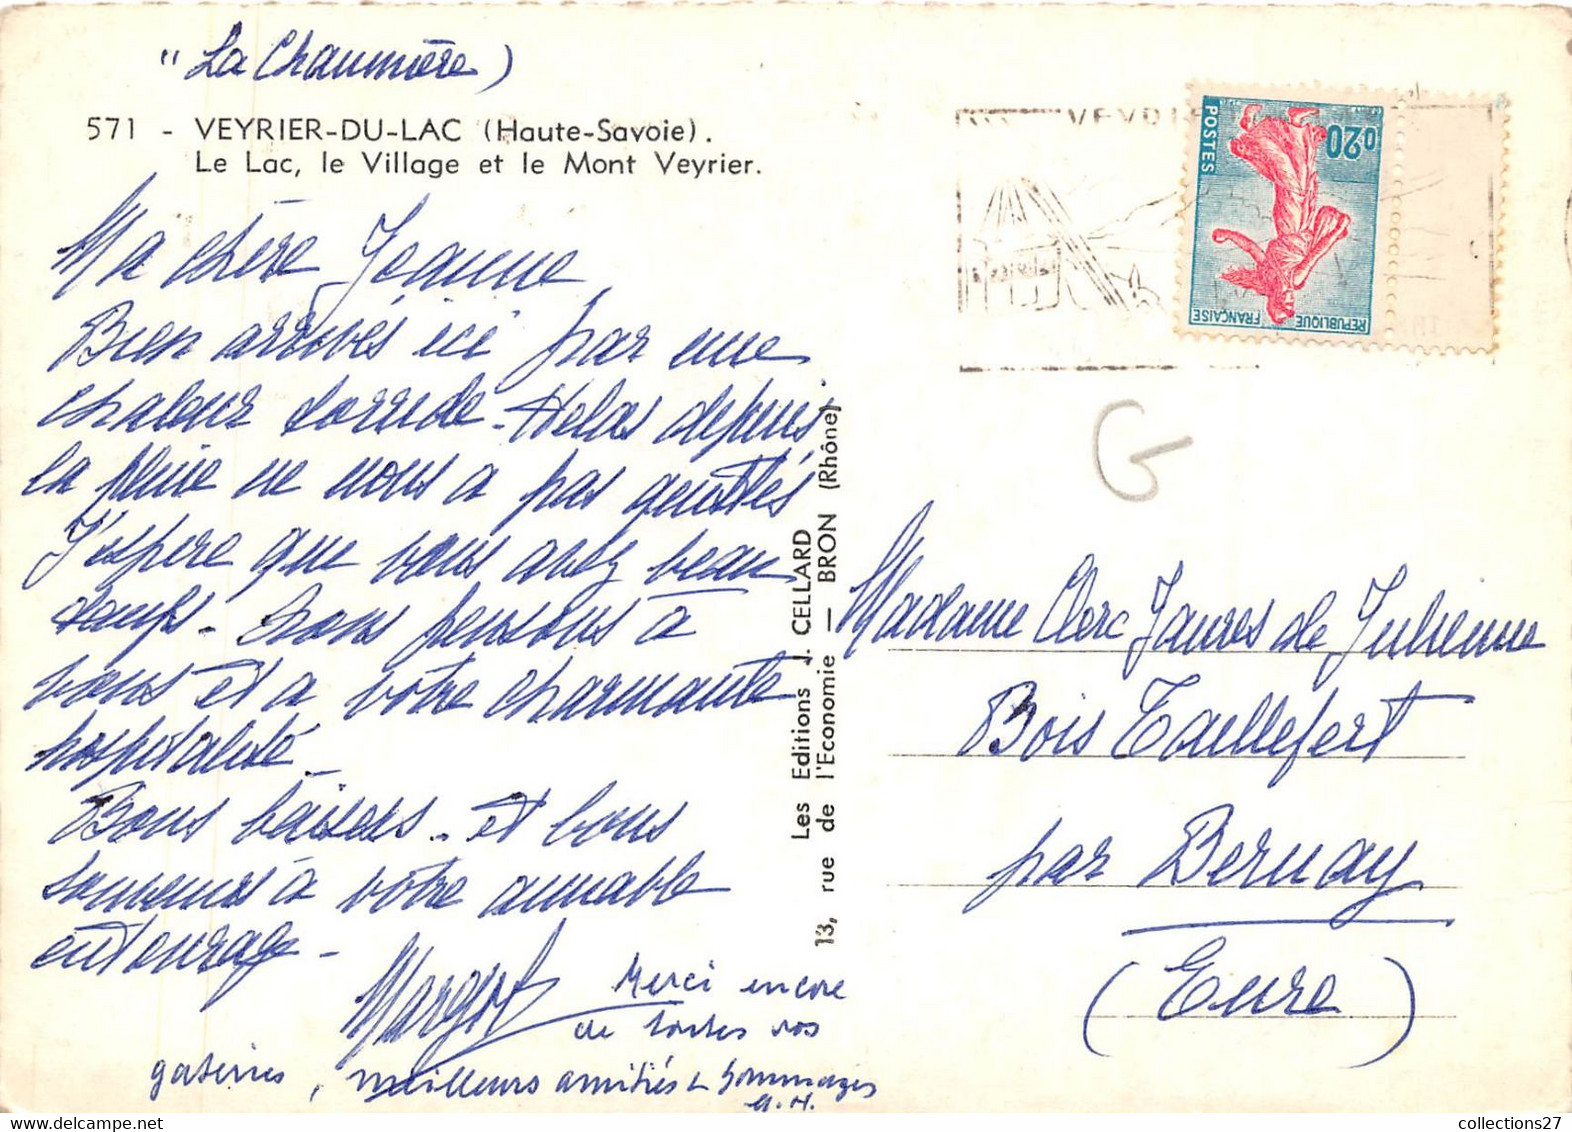 "La Chaumière)
571 - VEYRIER-DU-LAC (Haute-Savoie).
Le Lac, le Village et le Mont Veyrier.
Ma chère Jeanne
Bien arrivés ici par une
chaleur torride - Helas depuis
la pluie ne nous a pas quittés
J'espere que vous avez beau
temps - Nous pensons à
vous et à votre charmante
hospitalité.
Bons baisers - et bons
souvenirs à votre aimable
entourage -
Margot
Merci encore
de toutes vos
gateries, meilleurs amitiés & hommages
Les Editions J. CELLARD
13, rue de l'Economie — BRON (Rhône)
VEYRIE
0,20
POSTES
REPUBLIQUE FRANÇAISE
G
Madame Clerc Jaures de Julienne
Bois Taillefert
par Bernay
(Eure)
collections27